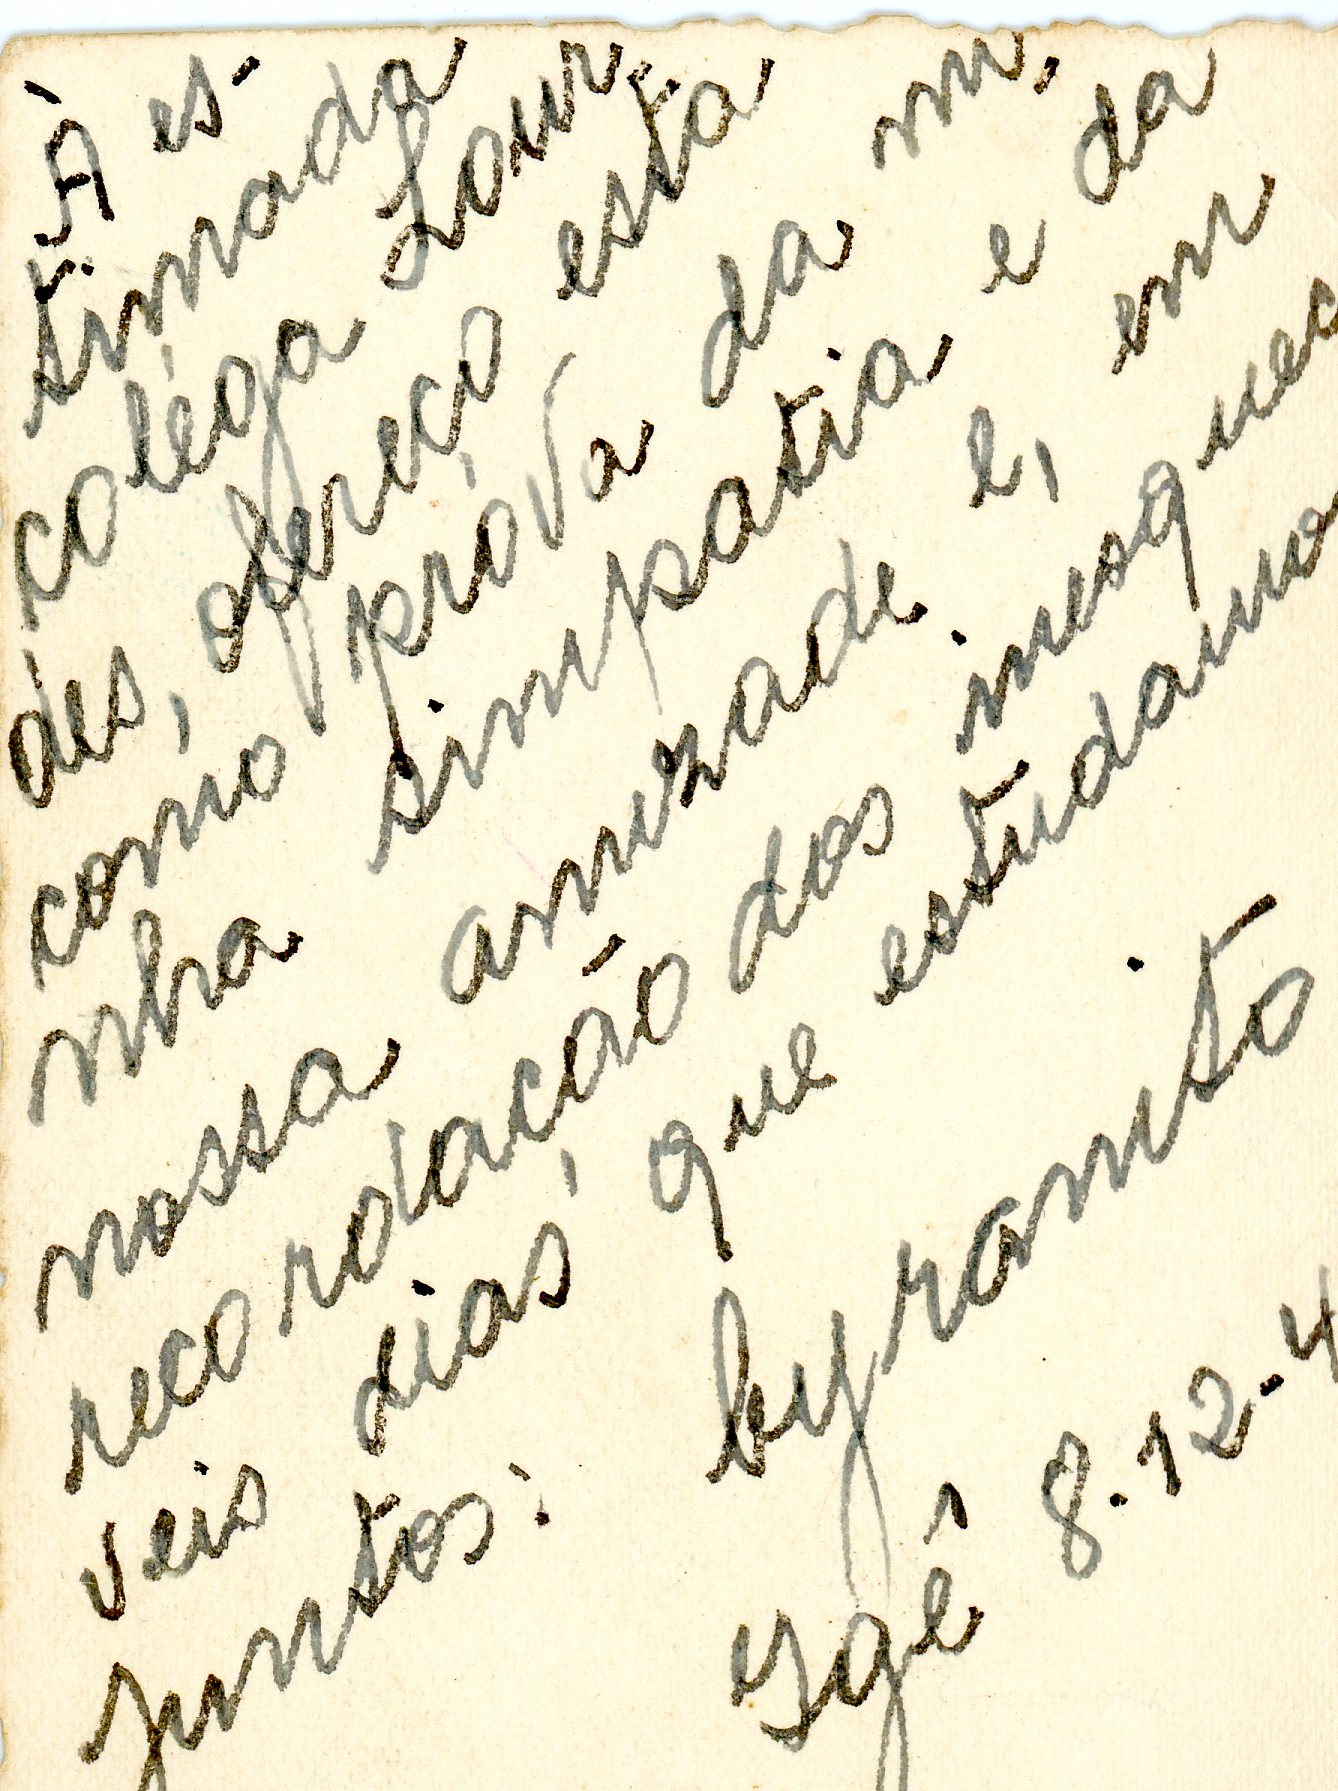 À es-
timada
colega Lour
des, ofereço esta
como prova da mi,
nha simpatia e da
nossa amizade e, em
recordação dos inesquecí
veis dias, que estudamo
juntos.
Byramito
Igê 8-12-4